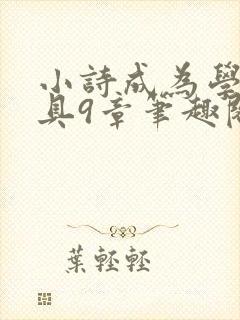 小詩成為學
具9章筆趣閣
葉輕輕